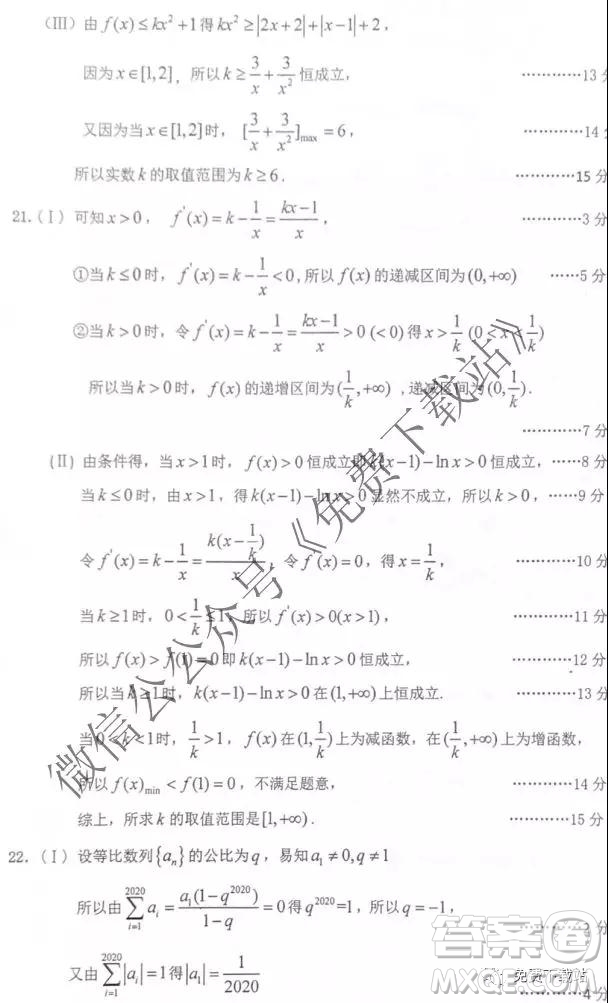 (III) 由 f(x)≤kx²+1得kx²≥|2x+2|+|x−1|+2,
因为x∈[1,2], 所以k≥3/x+3/x²恒成立, …………13 分
又因为当x∈[1,2]时, [3/x+3/x²]max=6, …………14 分
所以实数k的取值范围为k≥6. …………15 分
21.(I) 可知x>0, f'(x)=k−1/x=(kx−1)/x, …………3 分
①当k≤0时, f'(x)=k−1/x<0,所以f(x)的递减区间为(0,+∞) ……5 分
②当k>0时, 令f'(x)=k−1/x=(kx−1)/x>0 (<0)得x>1/k (0<x<1/k)
所以当k>0时, f(x)的递增区间为(1/k,+∞) ,递减区间为(0,1/k).
…………7 分
(II) 由条件得, 当x>1时, f(x)>0恒成立即k(x−1)−ln x>0恒成立, ……8 分
当k≤0时, 由x>1, 得k(x−1)−ln x>0显然不成立, 所以k>0, ……9 分
令f'(x)=k−1/x=k(x−1/k)/x, 令f'(x)=0, 得x=1/k, …………10 分
当k≥1时, 0<1/k≤1, 所以f'(x)>0(x>1), …………11 分
所以f(x)>f(1)=0即k(x−1)−ln x>0恒成立, …………12 分
所以当k≥1时, k(x−1)−ln x>0在(1,+∞)上恒成立. …………13 分
当0<k<1时, 1/k>1, f(x)在(1,1/k)上为减函数, 在(1/k,+∞)上为增函数,
所以f(x)min<f(1)=0, 不满足题意, …………14 分
综上, 所求k的取值范围是[1,+∞). …………15 分
22.(I) 设等比数列{aₙ}的公比为q, 易知a₁≠0,q≠1
所以由∑(i=1→2020) aᵢ=a₁(1−q²⁰²⁰)/(1−q)=0得q²⁰²⁰=1, 所以q=−1, …………3 分
又由∑(i=1→2020)|aᵢ|=1得|a₁|=1/2020 …………4 分
微信公众号《免费下载站》
答案圈
免费下载站